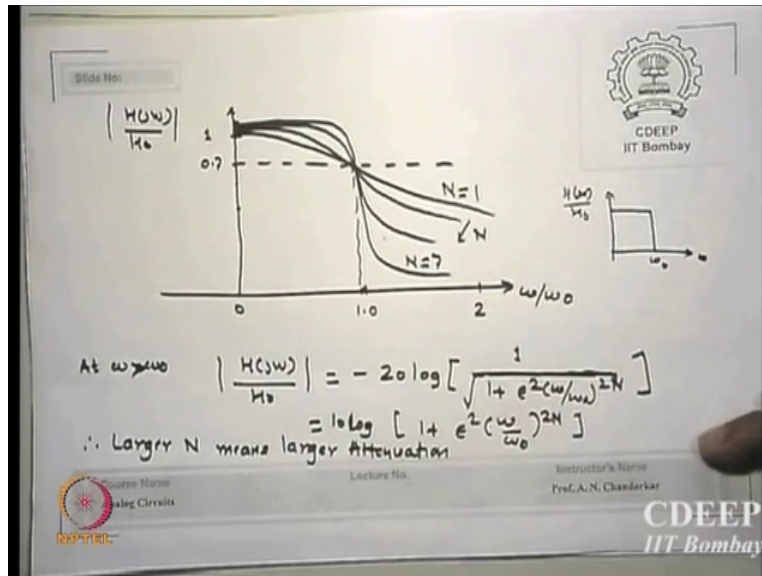 Slide No:
CDEEP
IIT Bombay
| H(jω)/H0 |
1
0.7
N=1
N
N=7
0
1.0
2
ω/ω0
H(ω)/H0
ω0
ω
At ω>ω0 | H(jω)/H0 | = - 20 log [ 1 / √(1+ ϵ²(ω/ω0)^2N) ]
= 10 log [ 1+ ϵ² (ω/ω0)^2N ]
∴ Larger N means larger Attenuation
Course Name
Analog Circuits
Lecture No.
Instructor's Name
Prof. A. N. Chandorkar
NPTEL
CDEEP
IIT Bombay